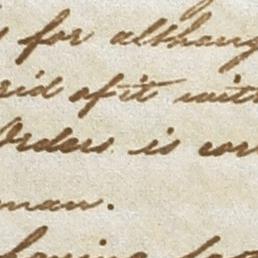 for althoug
rid of it with
Orders is con
man.
having